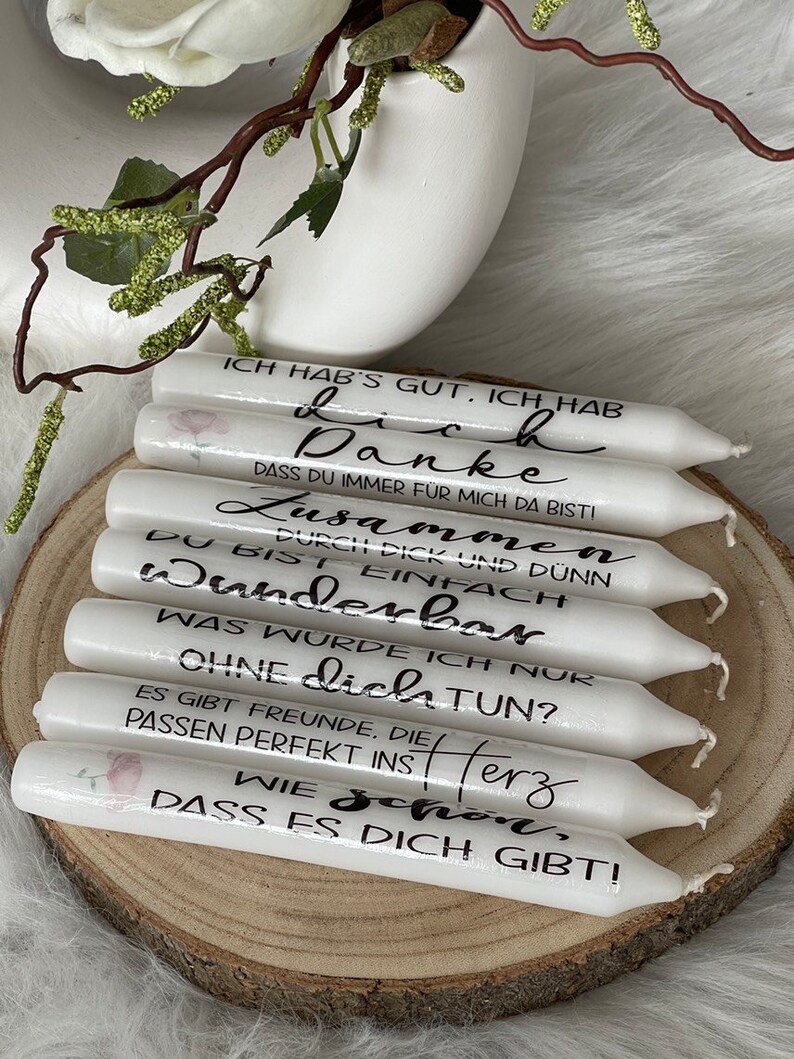 ICH HAB'S GUT, ICH HAB
dich
Danke
DASS DU IMMER FÜR MICH DA BIST!
Zusammen
DURCH DICK UND DÜNN
DU BIST EINFACH
Wunderbar
WAS WÜRDE ICH NUR
OHNE dich TUN?
ES GIBT FREUNDE, DIE
PASSEN PERFEKT INS Herz
WIE schön,
DASS ES DICH GIBT!